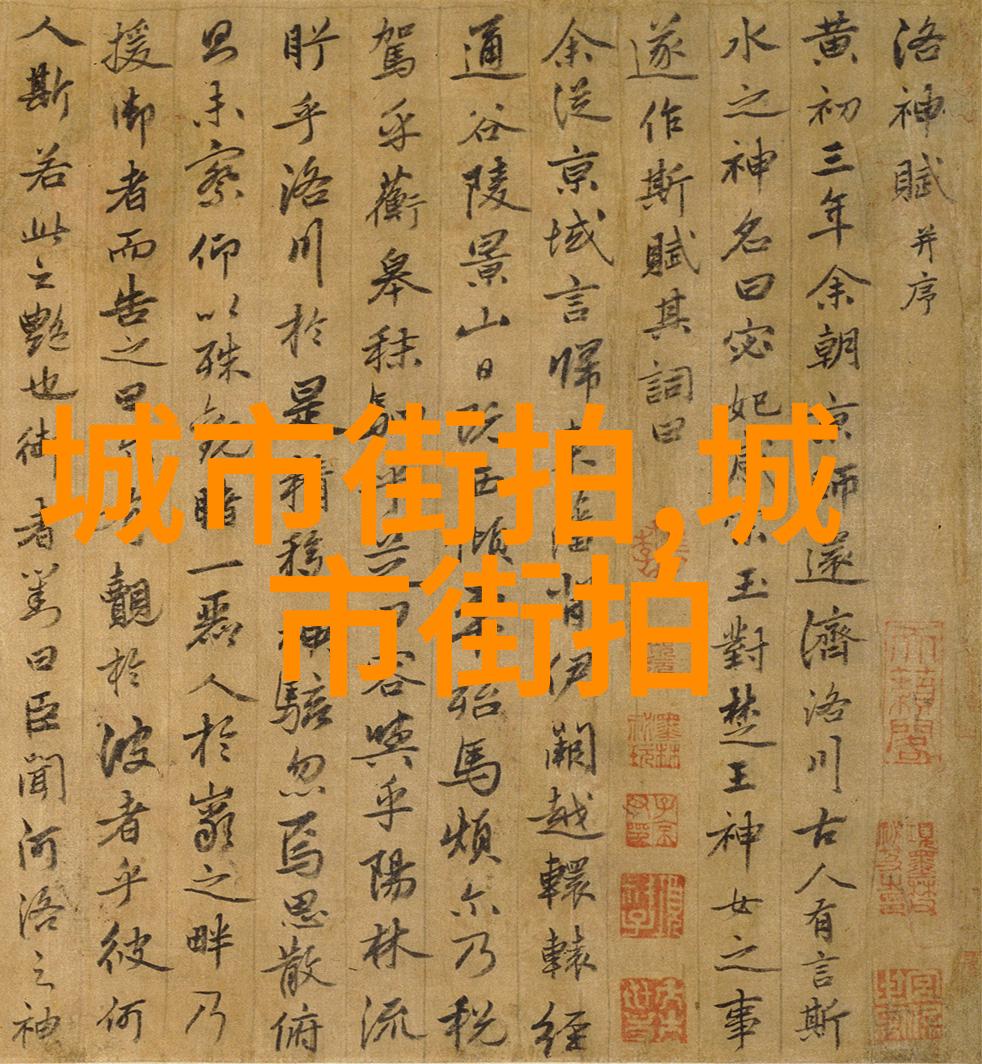 洛神賦并序
黄初三年余朝京師還濟洛川古人有言斯
水之神名曰宓妃感宋玉對楚王神女之事
遂作斯賦其詞曰
余從京域言歸東藩背伊闕越轘轅經
通谷陵景山日既西傾車殆馬煩尒乃税
駕乎蘅皋秣駟乎芝田容與乎陽林流
眄乎洛川於是精移神駭忽焉思散俯
則未察仰以殊觀睹一麗人於巖之畔乃
援御者而告之曰尒有覿於彼者乎彼何
人斯若此之艷也御者對曰臣聞河洛之神
城市街拍,城
市街拍